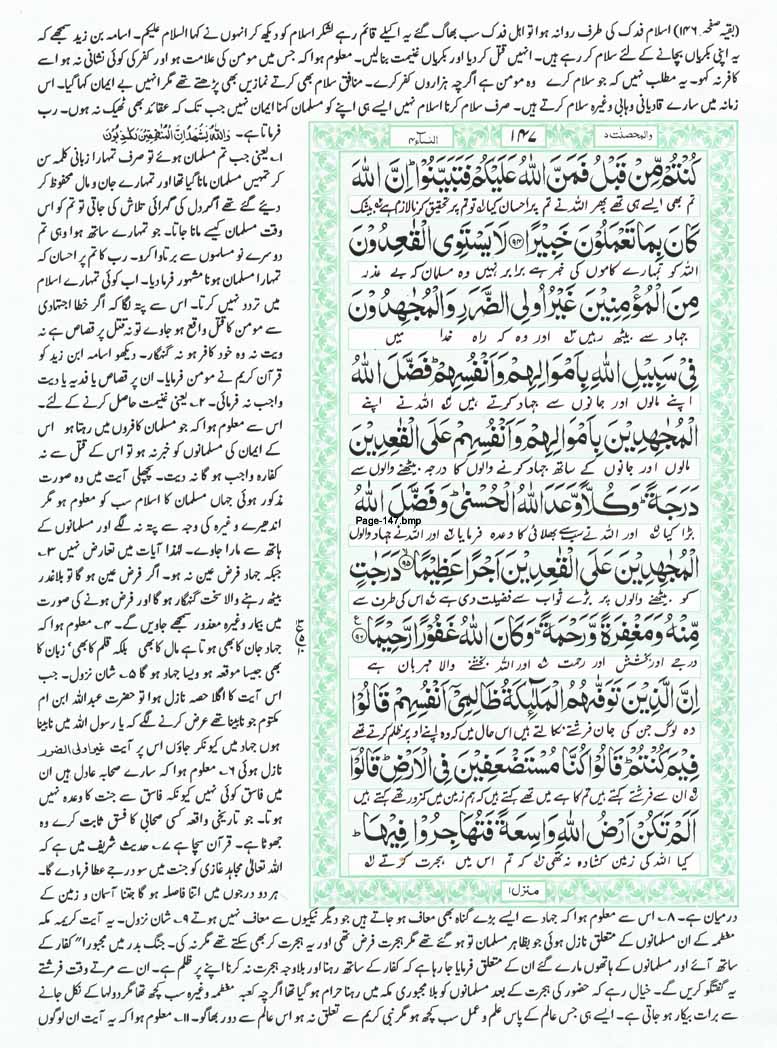 (بقیہ صفحہ ۱۴۶) اسلام فدک کی طرف روانہ ہوا تو اہل فدک سب بھاگ گئے یہ اکیلے قائم رہے لشکر اسلام کو دیکھ کر انہوں نے کہا السلام علیکم۔ اسامہ بن زید سمجھے کہ
یہ اپنی بکریاں بچانے کے لئے سلام کر رہے ہیں۔ انہیں قتل کر دیا اور بکریاں غنیمت بنالیں۔ معلوم ہوا کہ جس میں مومن کی علامت ہو اور کفر کی کوئی نشانی نہ ہو اسے
کافر نہ کہو۔ یہ مطلب نہیں کہ جو سلام کرے وہ مومن ہے اگرچہ ہزاروں کفر کرے۔ منافق سلام بھی کرتے نمازیں بھی پڑھتے تھے مگر انہیں بے ایمان کہا گیا۔ اس
زمانہ میں سارے قادیانی وہابی وغیرہ سلام کرتے ہیں۔ صرف سلام کرنا اسلام نہیں ایسے ہی اپنے کو مسلمان کہنا ایمان نہیں جب تک کہ عقائد بھی ٹھیک نہ ہوں۔ رب
والمحصنت ۵ ۱۴۷ النساء ۴
كُنْتُمْ مِّنْ قَبْلُ فَمَنَّ اللّٰهُ عَلَيْكُمْ فَتَبَيَّنُوْا ؕ اِنَّ اللّٰهَ
تم بھی ایسے ہی تھے پھر اللہ نے تم پر احسان کیا کہ تو تم پر تحقیق کرنا لازم ہے بیشک
كَانَ بِمَا تَعْمَلُوْنَ خَبِيْرًا ﴿۹۴﴾ لَا يَسْتَوِى الْقٰعِدُوْنَ
اللہ کو تمہارے کاموں کی خبر ہے برابر نہیں وہ مسلمان کہ بے عذر
مِنَ الْمُؤْمِنِيْنَ غَيْرُ اُولِى الضَّرَرِ وَالْمُجٰهِدُوْنَ
جہاد سے بیٹھ رہیں اور وہ کہ راہ خدا میں
فِىْ سَبِيْلِ اللّٰهِ بِاَمْوَالِهِمْ وَاَنْفُسِهِمْ ؕ فَضَّلَ اللّٰهُ
اپنے مالوں اور جانوں سے جہاد کرتے ہیں اللہ نے اپنے
الْمُجٰهِدِيْنَ بِاَمْوَالِهِمْ وَاَنْفُسِهِمْ عَلَى الْقٰعِدِيْنَ
مالوں اور جانوں کے ساتھ جہاد کرنے والوں کا درجہ بیٹھنے والوں سے
دَرَجَةً ؕ وَكُلًّا وَّعَدَ اللّٰهُ الْحُسْنٰى ؕ وَفَضَّلَ اللّٰهُ
بڑا کیا اور اللہ نے سب سے بھلائی کا وعدہ فرمایا اور اللہ نے جہاد والوں
Page-147.bmp
الْمُجٰهِدِيْنَ عَلَى الْقٰعِدِيْنَ اَجْرًا عَظِيْمًا ﴿۹۵﴾ دَرَجٰتٍ
کو بیٹھنے والوں پر بڑے ثواب سے فضیلت دی ہے اس کی طرف سے
مِّنْهُ وَمَغْفِرَةً وَّرَحْمَةً ؕ وَكَانَ اللّٰهُ غَفُوْرًا رَّحِيْمًا ﴿۹۶﴾
درجے اور بخشش اور رحمت اور اللہ بخشنے والا مہربان ہے
اِنَّ الَّذِيْنَ تَوَفّٰىهُمُ الْمَلٰٓئِكَةُ ظَالِمِىْٓ اَنْفُسِهِمْ قَالُوْا
وہ لوگ جن کی جان فرشتے نکالتے ہیں اس حال میں کہ وہ اپنے اوپر ظلم کرتے تھے
فِيْمَ كُنْتُمْ ؕ قَالُوْا كُنَّا مُسْتَضْعَفِيْنَ فِى الْاَرْضِ ؕ قَالُوْٓا
ان سے فرشتے کہتے ہیں تم کاہے میں تھے کہتے ہیں کہ ہم زمین میں کمزور تھے کہتے ہیں
اَلَمْ تَكُنْ اَرْضُ اللّٰهِ وَاسِعَةً فَتُهَاجِرُوْا فِيْهَا ؕ
کیا اللہ کی زمین کشادہ نہ تھی کہ تم اس میں ہجرت کرتے
منزل ۱
فرماتا ہے۔ واللہ یشہد ان المنفقین لکذبون
۱؂ یعنی جب تم مسلمان ہوئے تو صرف تمہارا زبانی کلمہ سن
کر تمہیں مسلمان مانا گیا تھا اور تمہارے جان و مال محفوظ کر
دیئے گئے تھے اگر دل کی گہرائی تلاش کی جاتی تو تم کو اس
وقت مسلمان کیسے مانا جاتا۔ جو تمہارے ساتھ ہوا وہی تم
دوسرے نو مسلموں سے برتاوا کرو۔ رب کا تم پر احسان کہ
تمہارا مسلمان ہونا مشہور فرما دیا۔ اب کوئی تمہارے اسلام
میں تردد نہیں کرتا۔ اس سے پتہ لگا کہ اگر خطا اجتہادی
سے مومن کا قتل واقع ہو جاوے تو نہ قتل پر قصاص ہے نہ
دیت نہ وہ خود کافر ہو نہ گنہگار۔ دیکھو اسامہ ابن زید کو
قرآن کریم نے مومن فرمایا۔ ان پر قصاص یا فدیہ یا دیت
واجب نہ فرمائی۔ ۲؂ یعنی غنیمت حاصل کرنے کے لئے۔
اس سے معلوم ہوا کہ جو مسلمان کافروں میں رہتا ہو اس
کے ایمان کی مسلمانوں کو خبر نہ ہو تو اس کے قتل سے نہ
کفارہ واجب ہو گا نہ دیت۔ پچھلی آیت میں وہ صورت
مذکور ہوئی جہاں مسلمان کا اسلام سب کو معلوم ہو مگر
اندھیرے وغیرہ کی وجہ سے پتہ نہ لگے اور مسلمانوں کے
ہاتھ سے مارا جاوے۔ لہٰذا آیات میں تعارض نہیں ۳؂
جبکہ جہاد فرض عین نہ ہو۔ اگر فرض عین ہو گا تو بلاعذر
بیٹھ رہنے والا سخت گنہگار ہو گا اور فرض ہونے کی صورت
میں بیمار وغیرہ معذور سمجھے جاویں گے۔ ۴؂ معلوم ہوا کہ
جہاد جان کا بھی ہوتا ہے مال کا بھی بلکہ قلم کا بھی زبان کا
بھی جیسا موقعہ ہو ویسا جہاد ہو گا ۵؂ شان نزول۔ جب
اس آیت کا اگلا حصہ نازل ہوا تو حضرت عبداللہ ابن ام
مکتوم جو نابینا تھے عرض کرنے لگے کہ یا رسول اللہ میں نابینا
ہوں جہاد میں کیونکر جاؤں اس پر آیت غیر اولی الضرر
نازل ہوئی ۶؂ معلوم ہوا کہ سارے صحابہ عادل ہیں ان
میں فاسق کوئی نہیں کیونکہ فاسق سے جنت کا وعدہ نہیں
ہوتا۔ جو تاریخی واقعہ کسی صحابی کا فسق ثابت کرے وہ
جھوٹا ہے۔ قرآن سچا ہے ۷؂ حدیث شریف میں ہے کہ
اللہ تعالیٰ مجاہد غازی کو جنت میں سو درجے عطا فرمادے گا۔
ہر دو درجوں میں اتنا فاصلہ ہو گا جتنا آسمان و زمین کے
درمیان ہے۔ ۸؂ اس سے معلوم ہوا کہ جہاد سے ایسے بڑے گناہ بھی معاف ہو جاتے ہیں جو دیگر نیکیوں سے معاف نہیں ہوتے ۹؂ شان نزول۔ یہ آیت کریمہ مکہ
معظمہ کے ان مسلمانوں کے متعلق نازل ہوئی جو بظاہر مسلمان تو ہو گئے تھے مگر ہجرت فرض تھی اور یہ ہجرت کر بھی سکتے تھے مگر نہ کی۔ جنگ بدر میں مجبوراً کفار کے
ساتھ آئے اور مسلمانوں کے ہاتھوں مارے گئے ان کے متعلق فرمایا جا رہا ہے کہ کفار کے ساتھ رہنا اور بلاوجہ ہجرت نہ کرنا اپنے پر ظلم ہے۔ ان سے مرتے وقت فرشتے
یہ گفتگو کریں گے۔ خیال رہے کہ حضور کی ہجرت کے بعد مسلمانوں کو بلا مجبوری مکہ میں رہنا حرام ہو گیا تھا اگرچہ کعبہ معظمہ وغیرہ سب کچھ تھا مگر دولہا کے نکل جانے
سے برات بیکار ہو جاتی ہے۔ ایسے ہی جس عالم کے پاس علم و عمل سب کچھ ہو مگر نبی کریم سے تعلق نہ ہو اس عالم سے دور بھاگو۔ ۱۱؂ معلوم ہوا کہ یہ آیت ان لوگوں